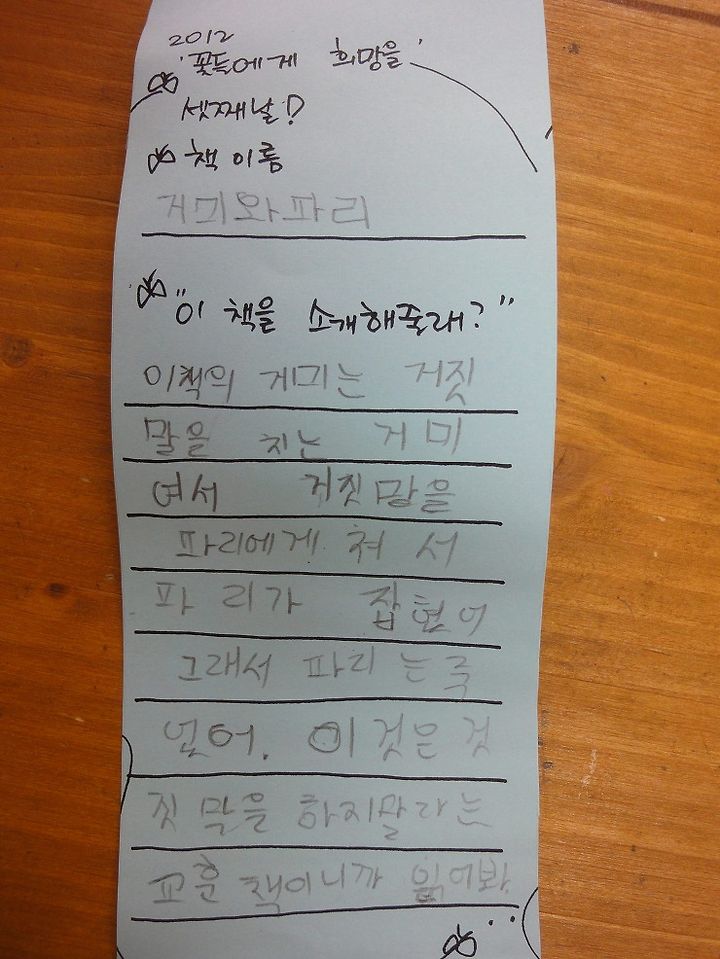 2012
'꽃들에게 희망을'
셋째날!
책 이름
거미와파리
"이 책을 소개해줄래?"
이책의 거미는 거짓
말을 치는 거미
여서 거짓망을
파리에게 처서
파리가 잡혔어
그래서 파리는 죽
었어. 이것은 것
짓막을 하지말라는
교훈책이니까 읽어봐.